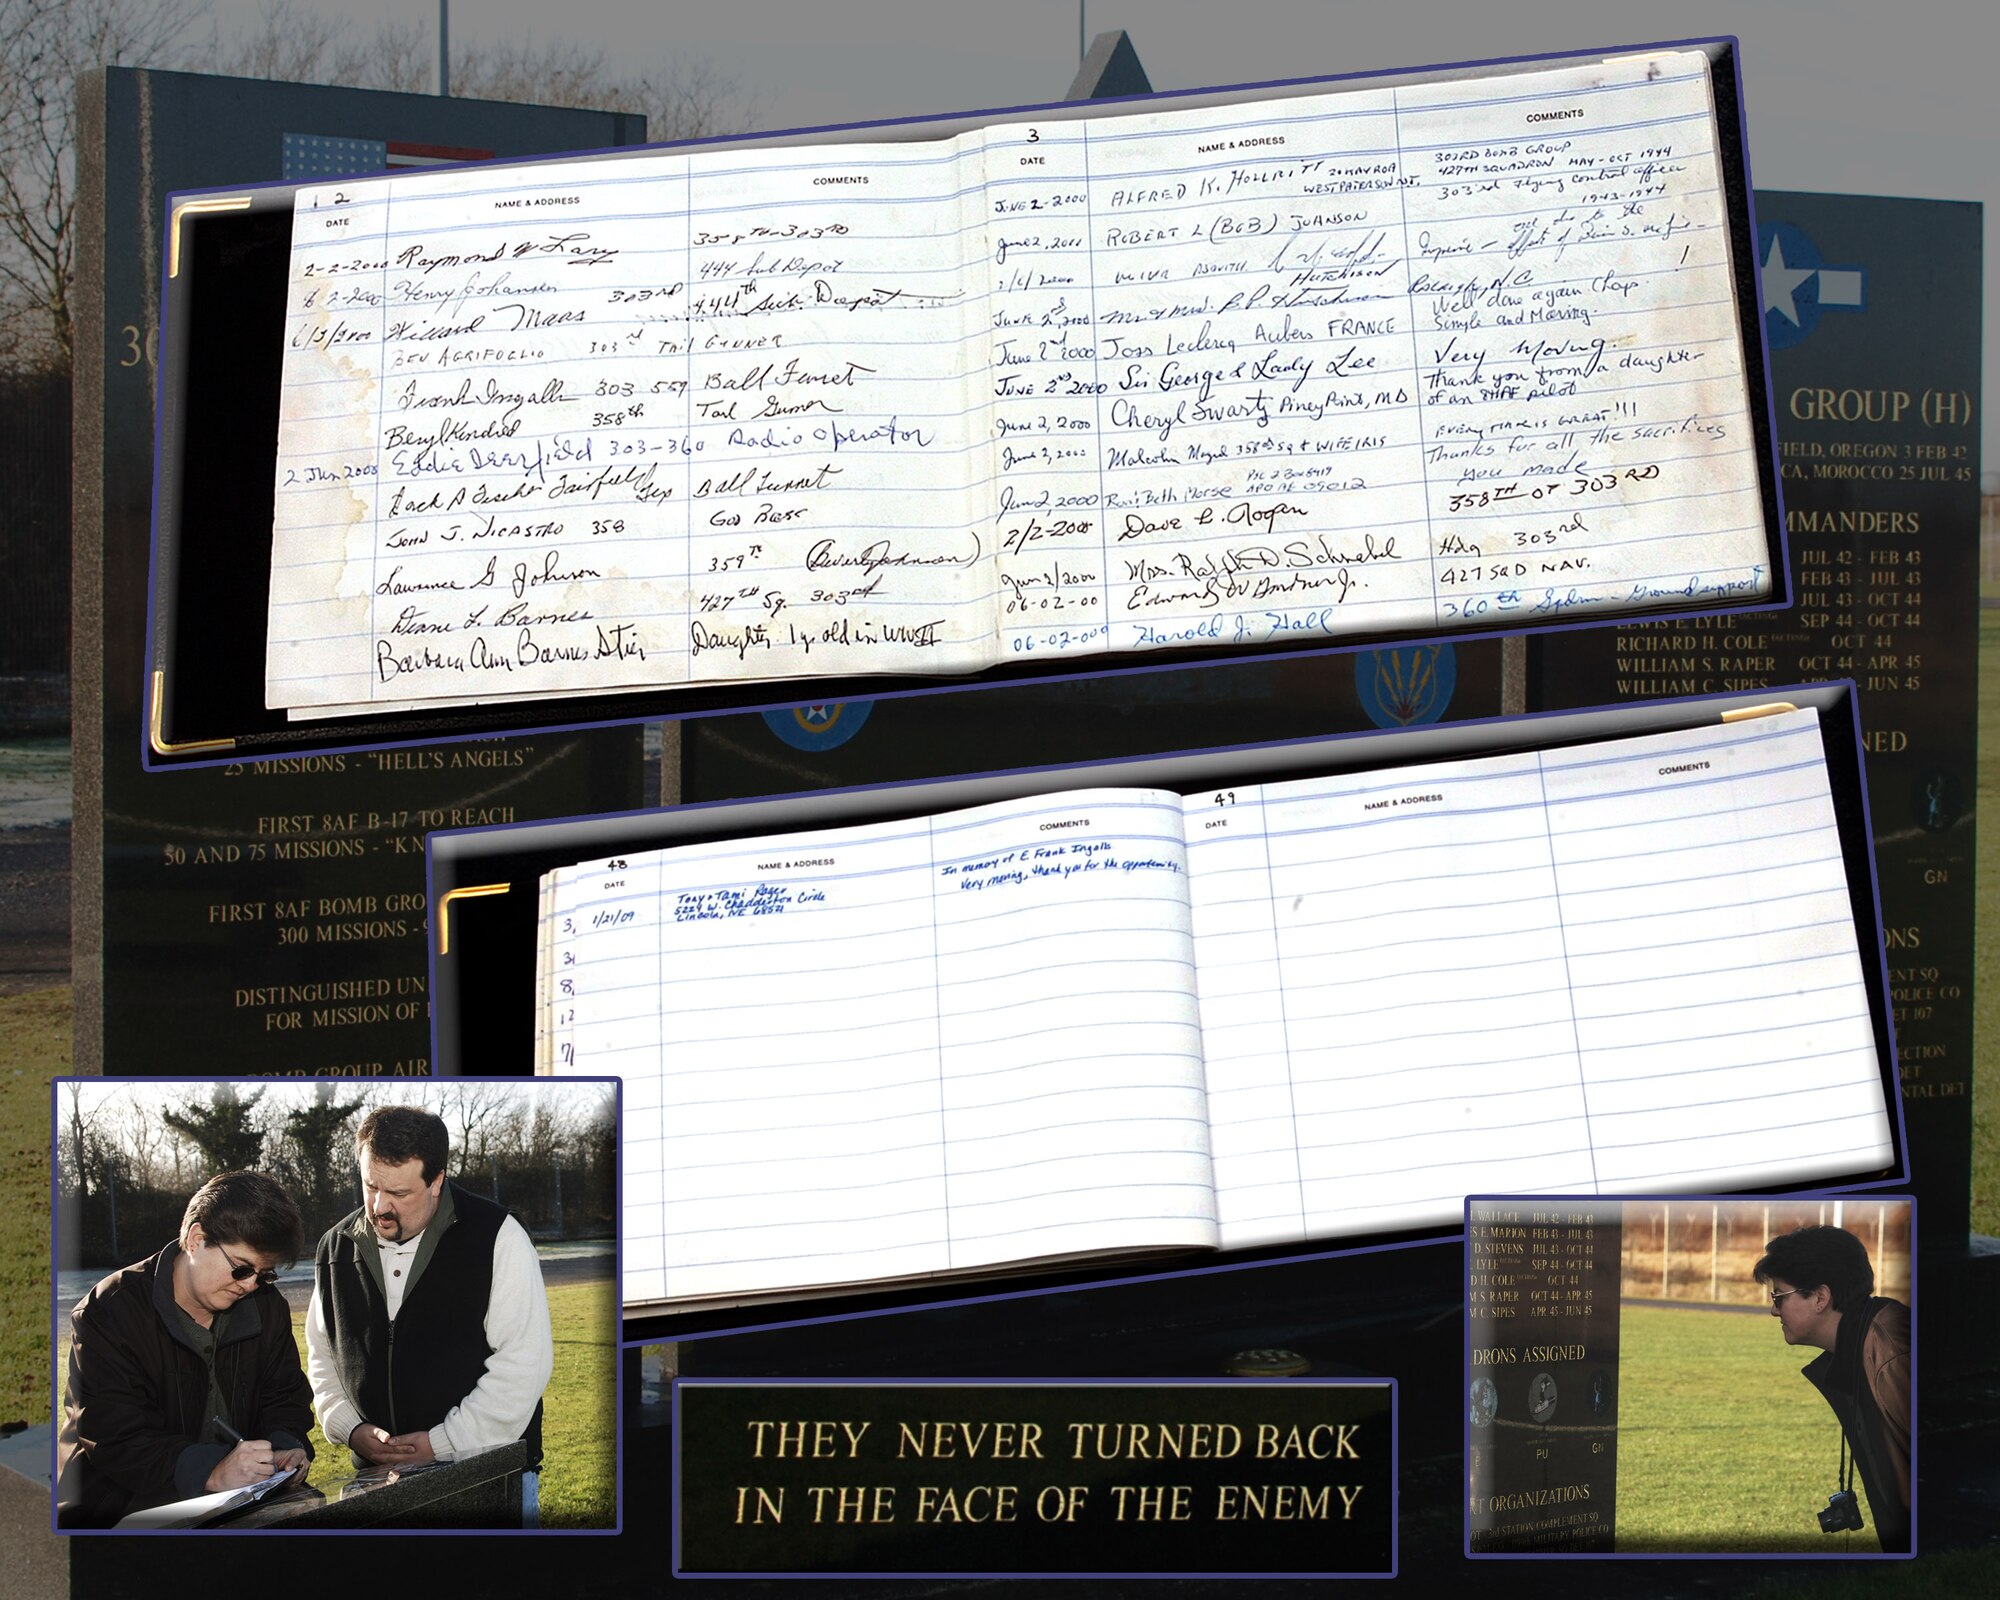 2
DATE
NAME & ADDRESS
COMMENTS
2-2-2000 Raymond W Lary 358TH-303RD
6 2-2000 Henry Johansen 444 Sub Depot
6/2/2000 Willard Maas 303RD 444th Sub Depot
BEV AGRIFOGLIO 303rd TAIL GUNNER
Frank Ingalls 303 559 Ball Turret
Beryl Kindred 358th Tail Gunner
2 Jun 2000 Eddie Deerfield 303-360 Radio Operator
Jack A Fischer Fairfield Ball Turret
JOHN J. NICASTRO 358 GOD BLESS
Lawrence G Johnson 359TH (Beverly Johnson)
Diane L. Barnes 427TH Sq. 303rd
Barbara Ann Barnes Stier Daughter 1 yr old in WWII
3
DATE
NAME & ADDRESS
COMMENTS
JUNE 2-2000 ALFRED K. 303RD BOMB GROUP
WEST PATERSON NJ. 427TH SQUADRON MAY-OCT 1944
June 2, 2000 ROBERT L (BOB) JOHNSON 303rd Flying control officer
1943-1944
HUTCHISON
June 2nd, 2000 Mr & Mrs. Hutchison Raleigh, N.C. !
June 2nd 2000 Joss Leclercq Aubers FRANCE Well done again Chaps.
Simple and Moving.
JUNE 2nd 2000 Sir George & Lady Lee Very Moving.
June 2, 2000 Cheryl Swartz Piney Point, MD Thank you from a daughter
of an 8thAF pilot
June 2, 2000 Malcolm 358th Sq & WIFE IRIS GREAT!!!
June 2, 2000 Beth Morse Thanks for all the sacrifices
APO AE 09012 you made
2/2-2000 Dave 358TH OF 303RD
June 2/2000 Mrs. Ralph D. Schnabel Hdq 303rd
06-02-00 Edward Jr. 427 SQD NAV.
06-02-00 Harold J. Hall 360th Sqdrn - Ground support
30
GROUP (H)
FIELD, OREGON 3 FEB 42
CA, MOROCCO 25 JUL 45
MMANDERS
JUL 42 - FEB 43
FEB 43 - JUL 43
JUL 43 - OCT 44
LEWIS E. LYLE SEP 44 - OCT 44
RICHARD H. COLE OCT 44
WILLIAM S. RAPER OCT 44 - APR 45
WILLIAM C. SIPES APR 45 - JUN 45
NED
GN
ONS
ENT SQ
POLICE CO
ET 107
ECTION
DET
NTAL DET
25 MISSIONS - "HELL'S ANGELS"
FIRST 8AF B-17 TO REACH
50 AND 75 MISSIONS - "KN
FIRST 8AF BOMB GRO
300 MISSIONS - 9
DISTINGUISHED UN
FOR MISSION OF
BOMB GROUP AIR
48
DATE
NAME & ADDRESS
COMMENTS
1/21/09 Tony & Tami Rager In memory of E. Frank Ingalls
5229 W. Chaddeston Circle Very moving, thank you for the opportunity.
Lincoln, NE 68521
49
DATE
NAME & ADDRESS
COMMENTS
WALLACE JUL 42 - FEB 43
S E. MARION FEB 43 - JUL 43
D. STEVENS JUL 43 - OCT 44
LYLE SEP 44 - OCT 44
D H. COLE OCT 44
M S. RAPER OCT 44 - APR 45
M C. SIPES APR 45 - JUN 45
DRONS ASSIGNED
PU GN
RT ORGANIZATIONS
STATION COMPLEMENT SQ
MILITARY POLICE CO
THEY NEVER TURNED BACK
IN THE FACE OF THE ENEMY